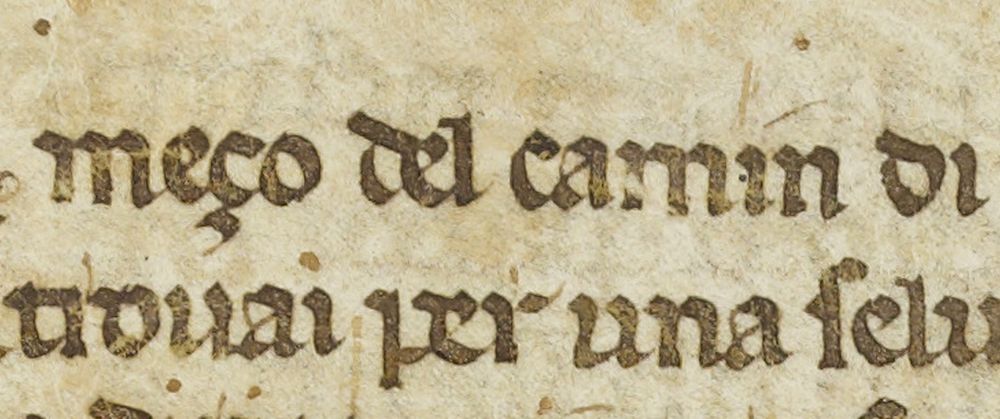 meço del camin di
per una selu